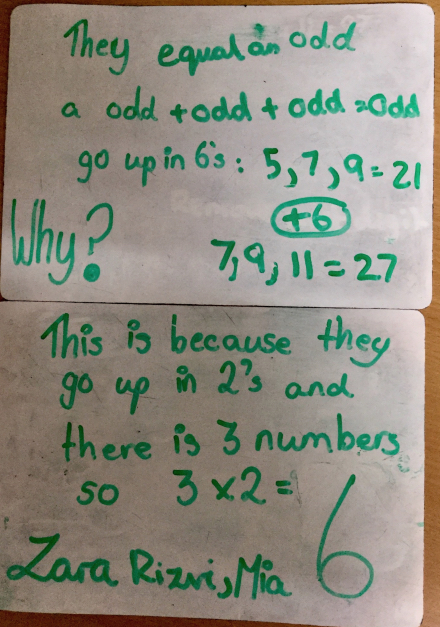 They equal an odd
a odd + odd + odd = odd
go up in 6's: 5, 7, 9 = 21
+6
Why?
7, 9, 11 = 27
This is because they
go up in 2's and
there is 3 numbers
so 3 x 2 = 6
Zara Rizwi, Mia